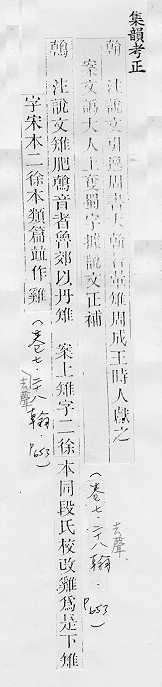 集韻考正
翰 注說文引逸周書大翰若翬雉周成王時人獻之
案文訛大人上奪蜀字據說文正補 (卷七·二十八翰·P653) 去聲
鶾 注說文雉肥鶾音者魯郊以丹雉 案上雉字二徐本同段氏校改雞為是下雉
字宋本二徐本類篇並作雞 (卷七·二十八翰·P653) 去聲